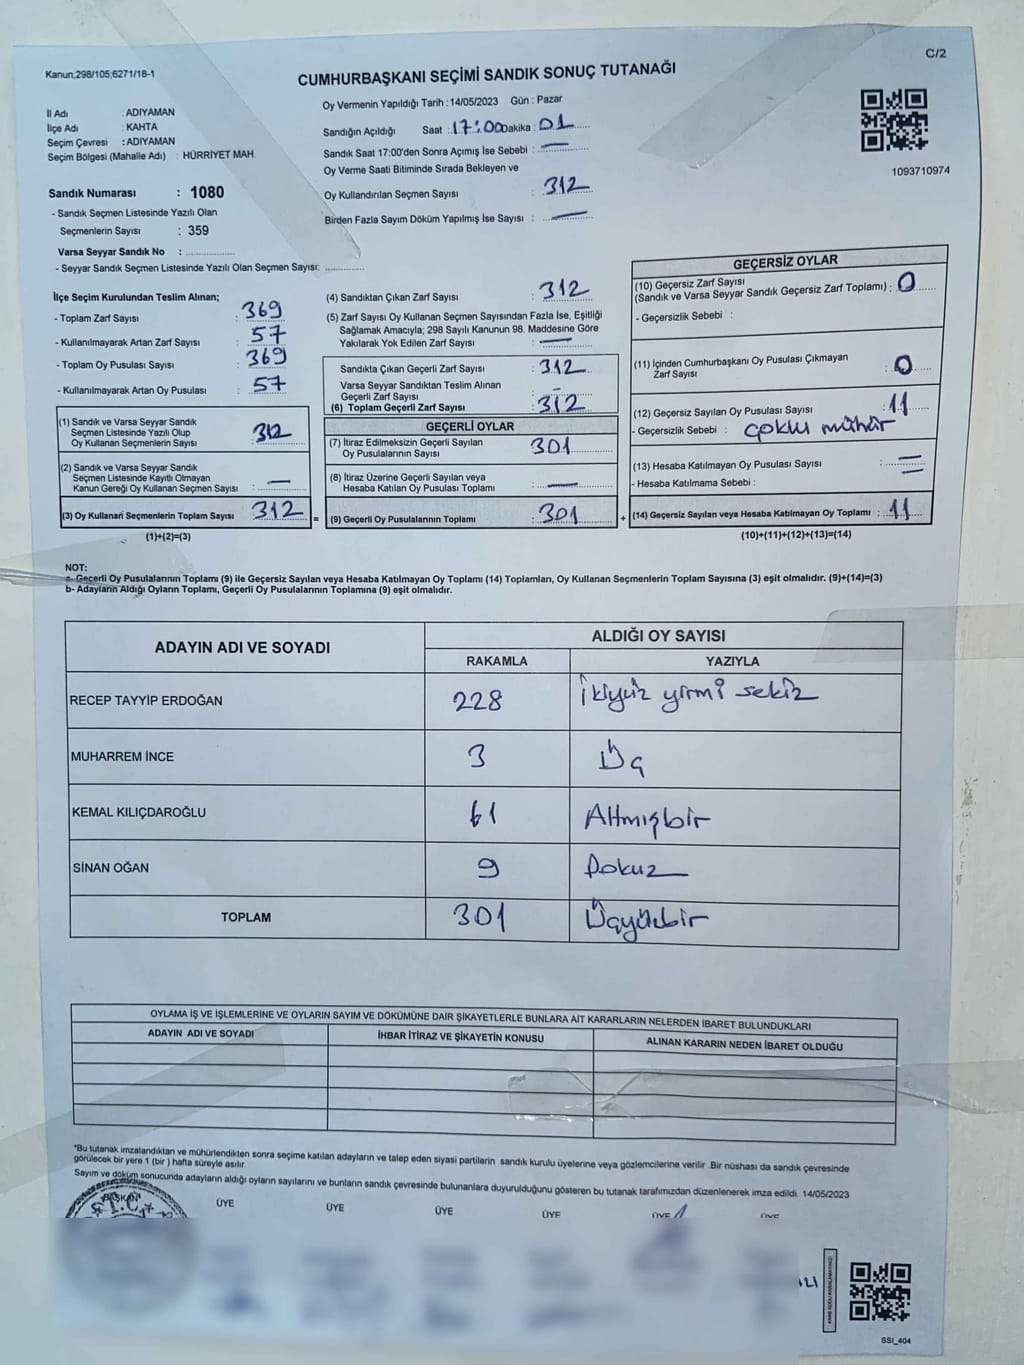 C/2
Kanun,298/105;6271/18-1
CUMHURBAŞKANI SEÇİMİ SANDIK SONUÇ TUTANAĞI
İl Adı : ADIYAMAN
İlçe Adı : KAHTA
Seçim Çevresi : ADIYAMAN
Seçim Bölgesi (Mahalle Adı) : HÜRRİYET MAH.
Sandık Numarası : 1080
- Sandık Seçmen Listesinde Yazılı Olan
Seçmenlerin Sayısı : 359
Varsa Seyyar Sandık No :
- Seyyar Sandık Seçmen Listesinde Yazılı Olan Seçmen Sayısı:
Oy Vermenin Yapıldığı Tarih : 14/05/2023 Gün : Pazar
Sandığın Açıldığı Saat : 17:00 Dakika : 01
Sandık Saat 17:00'den Sonra Açımış İse Sebebi : —
Oy Verme Saati Bitiminde Sırada Bekleyen ve
Oy Kullandırılan Seçmen Sayısı : 312
Birden Fazla Sayım Döküm Yapılmış İse Sayısı : —
1093710974
İlçe Seçim Kurulundan Teslim Alınan;
- Toplam Zarf Sayısı : 369
- Kullanılmayarak Artan Zarf Sayısı : 57
- Toplam Oy Pusulası Sayısı : 369
- Kullanılmayarak Artan Oy Pusulası : 57
(1) Sandık ve Varsa Seyyar Sandık
Seçmen Listesinde Yazılı Olup
Oy Kullanan Seçmenlerin Sayısı : 312
(2) Sandık ve Varsa Seyyar Sandık
Seçmen Listesinde Kayıtlı Olmayan
Kanun Gereği Oy Kullanan Seçmen Sayısı : —
(3) Oy Kullanan Seçmenlerin Toplam Sayısı : 312 =
(1)+(2)=(3)
(4) Sandıktan Çıkan Zarf Sayısı : 312
(5) Zarf Sayısı Oy Kullanan Seçmen Sayısından Fazla İse, Eşitliği
Sağlamak Amacıyla; 298 Sayılı Kanunun 98. Maddesine Göre
Yakılarak Yok Edilen Zarf Sayısı : —
Sandıkta Çıkan Geçerli Zarf Sayısı : 312
Varsa Seyyar Sandıktan Teslim Alınan
Geçerli Zarf Sayısı : –
(6) Toplam Geçerli Zarf Sayısı : 312
GEÇERLİ OYLAR
(7) İtiraz Edilmeksizin Geçerli Sayılan
Oy Pusulalarının Sayısı : 301
(8) İtiraz Üzerine Geçerli Sayılan veya
Hesaba Katılan Oy Pusulası Toplamı : —
(9) Geçerli Oy Pusulalarının Toplamı : 301 +
GEÇERSİZ OYLAR
(10) Geçersiz Zarf Sayısı
(Sandık ve Varsa Seyyar Sandık Geçersiz Zarf Toplamı) : 0
- Geçersizlik Sebebi :
(11) İçinden Cumhurbaşkanı Oy Pusulası Çıkmayan
Zarf Sayısı : 0
(12) Geçersiz Sayılan Oy Pusulası Sayısı : 11
- Geçersizlik Sebebi : çoklu mühür
(13) Hesaba Katılmayan Oy Pusulası Sayısı : —
- Hesaba Katılmama Sebebi : —
(14) Geçersiz Sayılan veya Hesaba Katılmayan Oy Toplamı : 11
(10)+(11)+(12)+(13)=(14)
NOT:
a- Geçerli Oy Pusulalarının Toplamı (9) ile Geçersiz Sayılan veya Hesaba Katılmayan Oy Toplamı (14) Toplamları, Oy Kullanan Seçmenlerin Toplam Sayısına (3) eşit olmalıdır. (9)+(14)=(3)
b- Adayların Aldığı Oyların Toplamı, Geçerli Oy Pusulalarının Toplamına (9) eşit olmalıdır.
ADAYIN ADI VE SOYADI ALDIĞI OY SAYISI
RAKAMLA YAZIYLA
RECEP TAYYİP ERDOĞAN 228 ikiyüz yirmi sekiz
MUHARREM İNCE 3 Üç
KEMAL KILIÇDAROĞLU 61 Altmışbir
SİNAN OĞAN 9 Dokuz
TOPLAM 301 Üçyüzbir
OYLAMA İŞ VE İŞLEMLERİNE VE OYLARIN SAYIM VE DÖKÜMÜNE DAİR ŞİKAYETLERLE BUNLARA AİT KARARLARIN NELERDEN İBARET BULUNDUKLARI
ADAYIN ADI VE SOYADI İHBAR İTİRAZ VE ŞİKAYETİN KONUSU ALINAN KARARIN NEDEN İBARET OLDUĞU
*Bu tutanak imzalandıktan ve mühürlendikten sonra seçime katılan adayların ve talep eden siyasi partilerin sandık kurulu üyelerine veya gözlemcilerine verilir .Bir nüshası da sandık çevresinde
görülecek bir yere 1 (bir ) hafta süreyle asılır.
Sayım ve döküm sonucunda adayların aldığı oyların sayılarını ve bunların sandık çevresinde bulunanlara duyurulduğunu gösteren bu tutanak tarafımızdan düzenlenerek imza edildi. 14/05/2023
BAŞKAN ÜYE ÜYE ÜYE ÜYE ÜYE ÜYE
T.C.
SSI_404